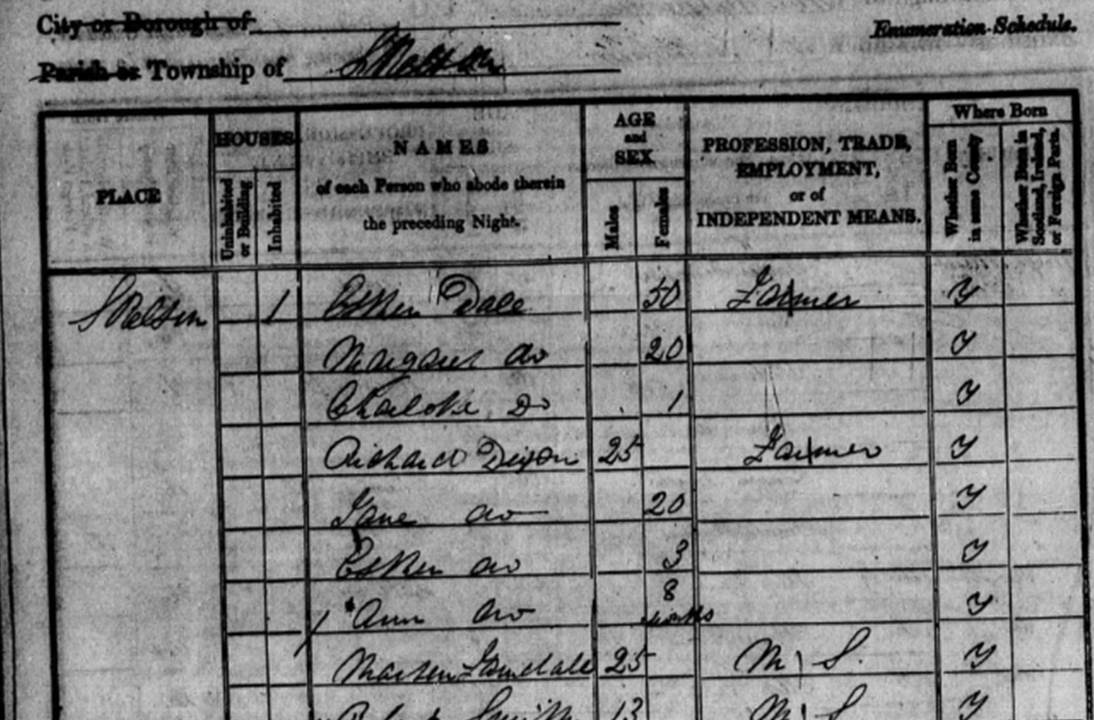 City or Borough of
Enumeration Schedule.
Parish or Township of Skelton
PLACE
HOUSES
Uninhabited or Building
Inhabited
NAMES
of each Person who abode therein
the preceding Night.
AGE
and
SEX
Males
Females
PROFESSION, TRADE,
EMPLOYMENT,
or of
INDEPENDENT MEANS.
Where Born
Whether Born in same County
Whether Born in Scotland, Ireland, or Foreign Parts.
Skelton 1 Esther Dale 50 Farmer y
Margaret do 20 y
Charlotte Do 1 y
Richard Dixon 25 Farmer y
Jane do 20 y
Esther do 3 y
Ann do 8 months y
25 M S. y
Smith 13 M S y